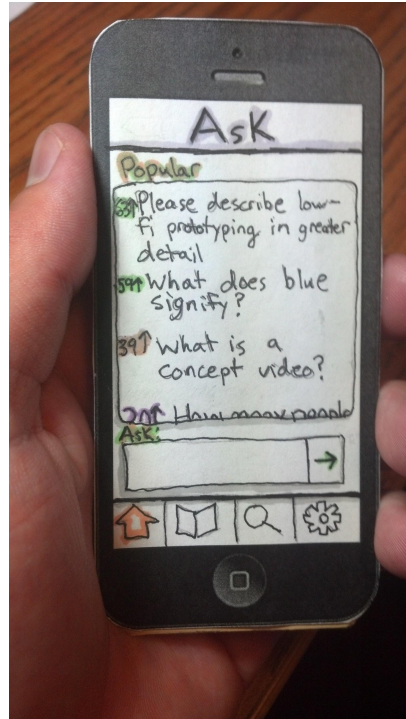 Ask
Popular
Please describe low-
fi prototyping in greater
detail
59↑ What does blue
signify?
39↑ What is a
concept video?
How many people
Ask: